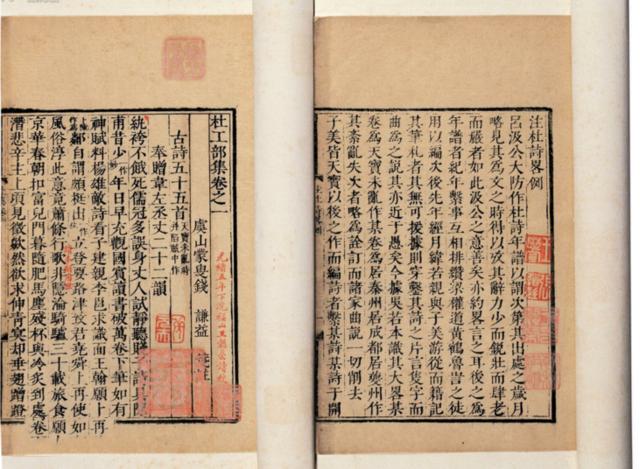 注杜詩畧例
呂汲公大防作杜詩年譜以謂次第其出處之歲月
略見其為文之時得以攷其辭力少而銳壯而肆老
而嚴者如此汲公之意善矣亦約畧言之耳後之為
年譜者紀年繫事互相排纘梁權道黃鶴魯訔之徒
用以編次後先年經月緯若親與子美游從而籍記
其筆札者其無可援據則穿鑿其詩之片言隻字而
曲為之說其亦近于愚矣今據吳若本識其大畧某
卷為天寶未亂作某卷為居秦州居成都居夔州作
其紊亂失次者略為詮訂而諸家曲說一切削去
子美皆天寶以後之作而編詩者繫某詩某詩于開
杜工部集卷之一
虞山蒙叟錢 謙益
古詩五十五首 天寶未亂時并陷賊中作
奉贈韋左丞丈二十二韻
紈袴不餓死儒冠多誤身丈人試靜聽賤子請具陳
甫昔少一作妙年日早充觀國賓讀書破萬卷下筆如有
神賦料楊雄敵詩看子建親李邕求識面王翰願卜
鄰自謂頗挺出立登要路津致君堯舜上再使
風俗淳此意竟蕭條行歌非隱淪騎驢三十載旅食
京華春朝扣富兒門暮隨肥馬塵殘杯與冷炙到處
潛悲辛主上頃見徵歘然欲求伸青冥却垂翅蹭蹬